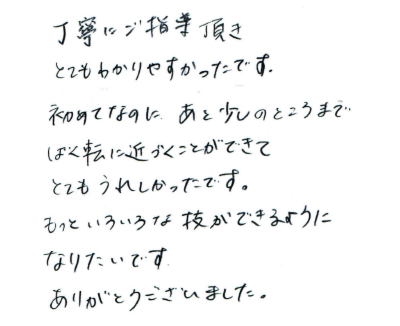 丁寧にご指導頂き
とてもわかりやすかったです.
初めてなのに あと少しのところまで
ばく転に近づくことができて
とてもうれしかったです。
もっといろいろな技ができるように
なりたいです
ありがとうございました。